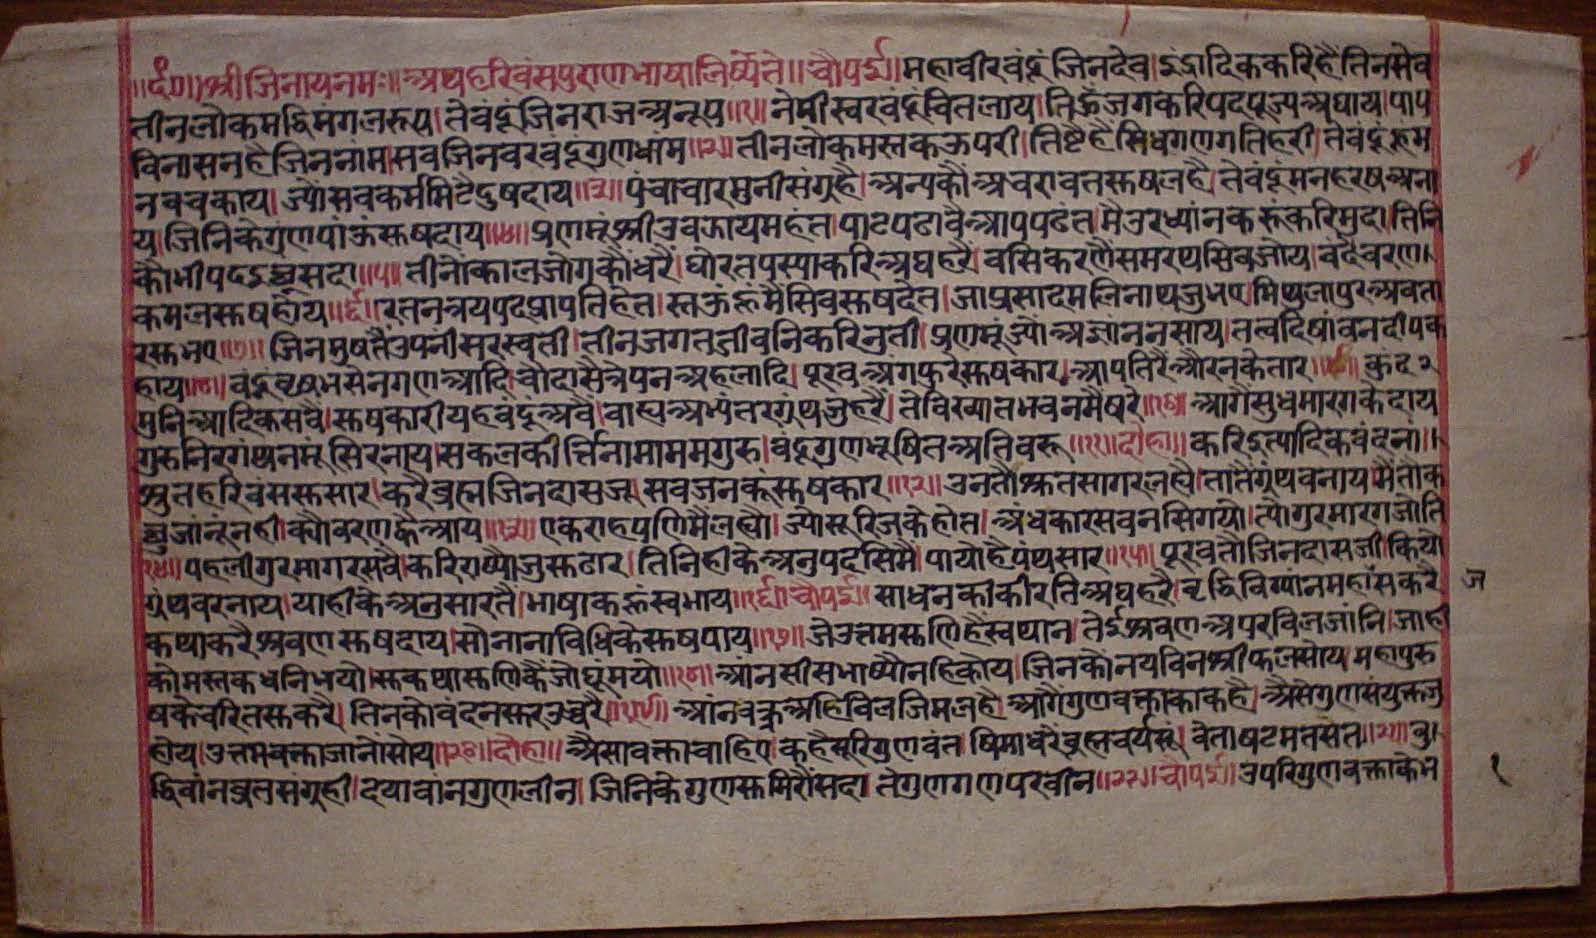 ॥दं७॥श्रीजिनायनमः॥अथहरिवंसपुराणभाषालिर्ष्यते॥चौपई॥महावीरवंदूंजिनदेव।इंद्रादिककरिहैंतिनसेव
तीनलौकमद्धिमंगलरूप।तेवंदूंजिनराजअनूप॥१॥नेमीस्वरवंदूंचितलाय।तिहूंजगकरिपदपूज्यअघाय।पाप
विनासनहैजिननांम।सबजिनवरवंदूंगुणधांम॥२॥तीनलोकमस्तकऊपरी।तिष्टैहैसिधगणगतिहरी।तेवंदूंहम
नवचकाय।ज्यौसवकर्ममिटैदुषदाय॥३॥पंचाचारमुनीसंगुहै।अन्यकौंअचरावतसुषलहै।तेवंदूंमनहरषअना
य।जिनिकेगुणपांऊंसुषदाय॥४॥प्रणमूंश्रीउवझायमहंत।पाठपढावैआपपढंत।मैउरध्यांनकरूंकरिमुदा।तिनि
कौभीपद सदा॥५॥तीनौंकालजोगकौंधरैं।घोरतपस्याकरिअघहरै।वसिकरणैंसमरथसिवजोय।वंदैचरण।
कमलसुषहोय॥६॥रतनत्रयपदप्रापतिहेत।स्तऊंहूंमैसिवसुषदेत।जाप्रसादमलिनाथजुभए।मिथलापुरअवता
रसुभए॥७॥जिनमुषतैउपनीसरस्वती।तीनजगतजीवनिकरिनुती।प्रणमूंज्यांअज्ञांननसाय।तत्वदिषांवनदीपक
होय॥८॥वंदूंवृषभसेनगणआदि।चौदासैत्रेपनअहलादि।पूरवअंगफुरैसुषकार।आपतिरैऔरनकेतार॥९॥कुंद२
मुनिआदिकसवै।सुषकारीयहवंदूंअवै।वास्यअभ्यंतरग्रंथजुहरै।तेविख्यातभवनमैषरै॥१०॥आगैसुधमारगकेदाय
गुरुनिरग्रंथनमूंसिरनाय।सकलकीर्त्तिनामाममगुरु।वंदूगुणभूषितअतिवरू॥११॥दोहा॥करिइत्यादिकवंदनां॥
श्रुतहरिवंससुसार।करैब्रह्मजिनदासजू।सवजनकूंसुषकार॥१२॥उनतौश्रुतसागरलह्यै।तातैग्रंथवनाय।मैतौक
छुजांनूंनही।क्यौवरणकैआय॥१३॥एकराहपणिमैलह्यौ।ज्यौसूरिजकेहोत।अंधकारसवनसिगयौ।त्यौगुरमारगजोति
१४॥पहलीगुरमागरसवै।करिराष्यौजुसुढार।तिनिहीकेअनुपदसिमै।पायौहैपंथसार॥१५॥पूरवतौजिनदासजी।कियौ
ग्रंथवरनाय।याहीकेअनुसारतै।भाषाकरूंस्वभाय॥१६॥चौपई॥साधनकीकीरतिअघहरै।वृद्धिविग्यानमहांसकरै ज
कथाकरैश्रवणसुषदाय।सोनानाविधिकेसुषपाय॥१७॥जेउत्तमसुणिहैंस्वथान।तेईश्रवणअपरविलजांनि।जाही
कोमस्तकधनिभयौ।सुकथासुणिकैंजोघूंमयौ॥१८॥आंनसीसभाष्यौनहिकोय।जिनकौंनयविनश्रीफलसोय।महापुरु
षकेचरितसुकरै।तिनकौवंदनसुरउच्चरै॥१९॥आंनवक्त्रअहिविलजिमलहै।आगैंगुणवक्ताकाकहै।अैसेगुणसंयुक्तजु
होय।उत्तमवक्ताजांनौंसोय॥२०॥दोहा॥अैसावक्ताचाहिए।कहैसूरिगुणवंत।षिमाधरेंब्रह्मचर्यसूं।वेताषटमतसंत॥२१॥वु।
द्धिवांनव्रतसंगुही।दयावांनगुणलीन।जिनिकेगुणसुमिरौंसदा।तेगुणगणपरवीन॥२२॥चौपई॥उपरिगुणवक्ताकेभ १